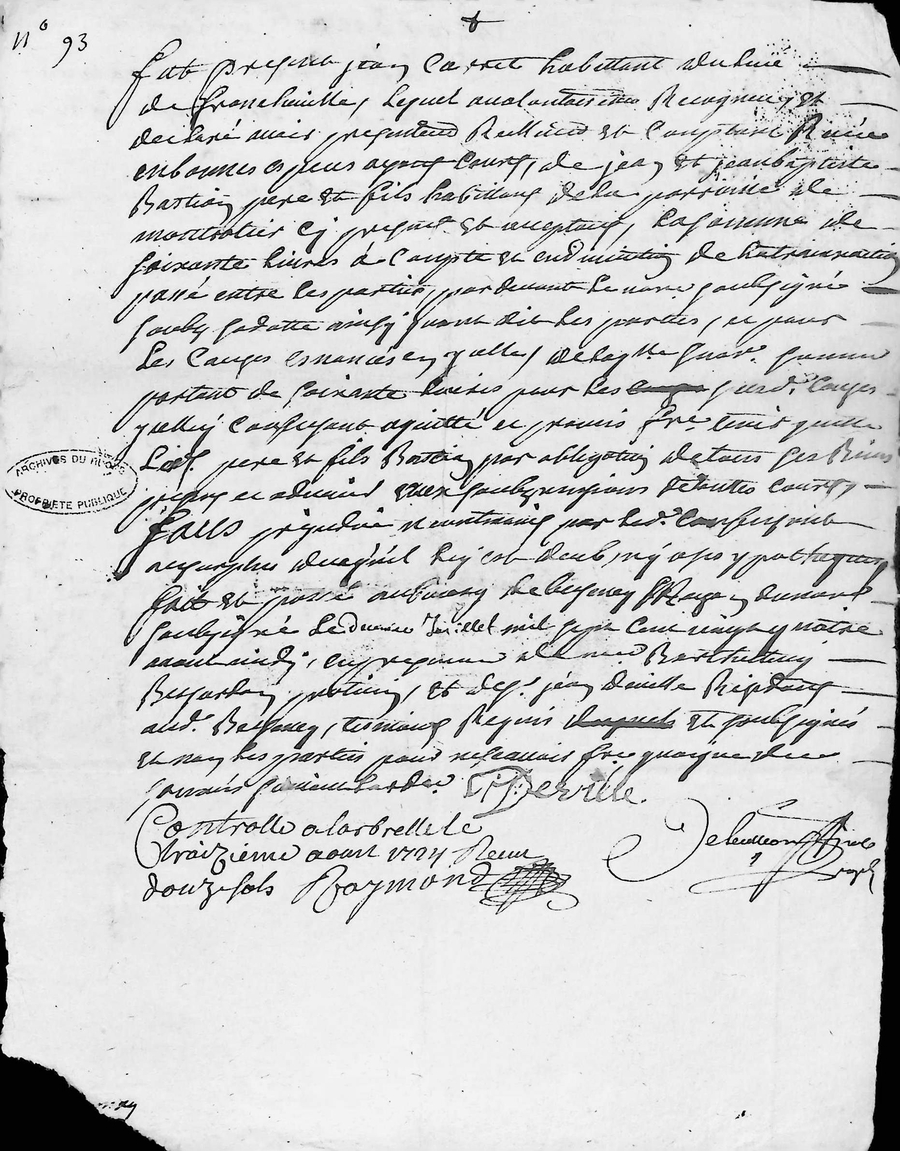 N° 93
fut present jean Carret habittant du lieu
de francheville, lequel a volontairement Recogneu et
declaré avoir presentement Reellement et comptant Receu
en bonnes especes ayant cours, de jean et jean baptiste
Bastion pere et fils habitans de la parroisse de
montrotier cy present et acceptans, la somme de
soixante livres à compte et en diminution de la transaction
passé entre les parties, par devant le no.re soubsigné
soubs sa datte ainsy qu'ont dit les parties, et pour
les Causes esnoncés en ycelle, de laq.lle somme
portant de soixante livres pour les susd. causes
ycelluy confessant a quitté et promis f.re tenir quitte
Lesd. pere et fils Bastion par obligation de tous ses Biens
presens et advenir aux soubzmissions de touttes courts
sans prejudice neantmoings par led. confessant
du surplus de ce qu'il luy est deub,
fait et passé au bourg de Bessenay
soubsigné Le Juillet mil sept cent vingt quatre
avant midy, en presence de Barthelemy
praticien, et de s.r jean deville Residans
aud. Bessenay, tesmoins Requis et soubsignés
et non les parties pour ne scavoir f.re
J Deville
Controllé a larbresle le
traizieme aoust 1724 Receu
douze sols Raymond
ARCHIVES DU RHONE
PROPRIETE PUBLIQUE